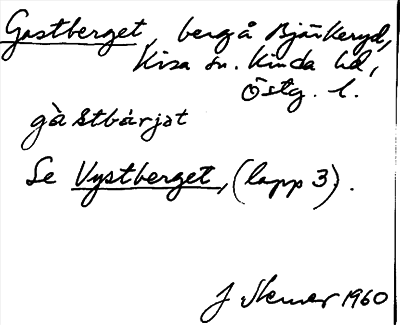 Gastberget, berg å Björkeryd,
Kisa sn. Kinda hd,
Östg. l.
gàstbárjət
Se Vystberget, (lapp 3).
J 1960